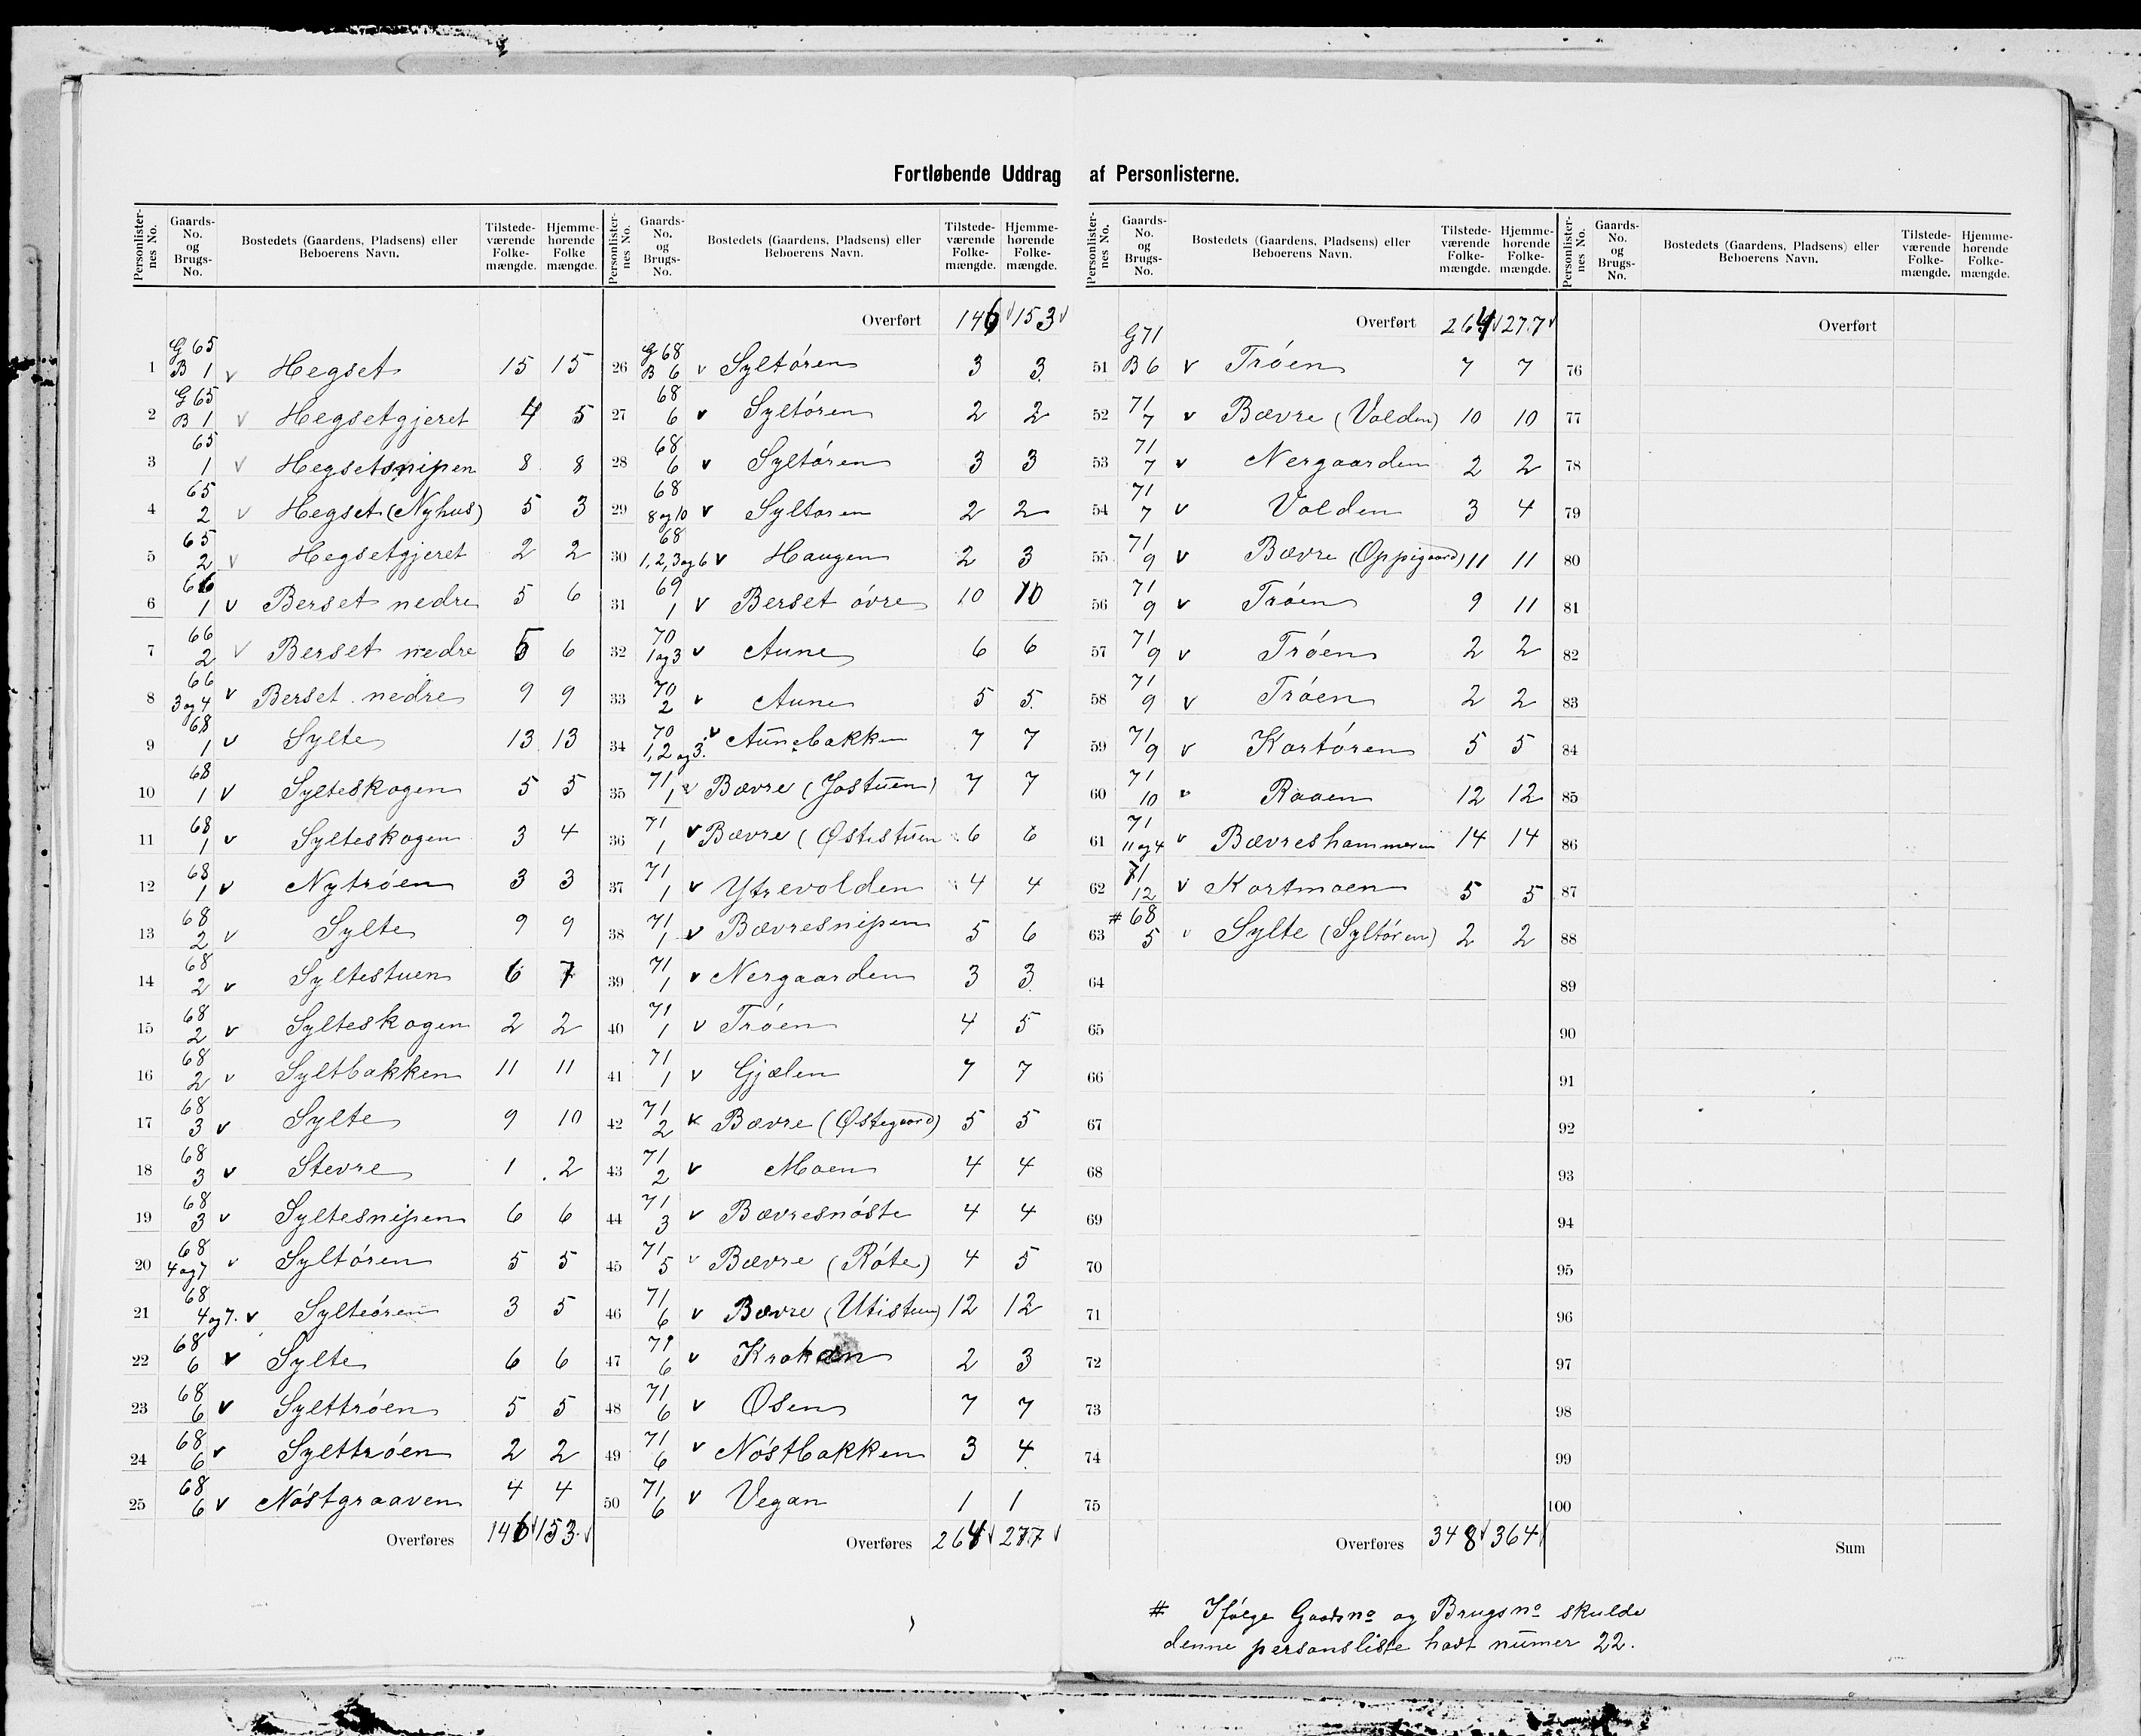 Fortløbende Uddrag af Personlisterne.
Personlisternes No. Gaards-No. og Brugs-No. Bostedets (Gaardens, Pladsens) eller Beboerens Navn. Tilstedeværende Folkemængde. Hjemmehørende Folkemængde.
1 G 65 B 1 v Hegset 15 15
2 G 65 B 1 v Hegsetgjeret 4 5
3 65 1 v Hegsetsnipen 8 8
4 65 2 v Hegset (Nyhus) 5 3
5 65 2 v Hegsetgjeret 2 2
6 66 1 v Berset nedre 5 6
7 66 2 v Berset nedre 5 6
8 66 3 og 4 v Berset nedre 9 9
9 68 1 v Sylte 13 13
10 68 1 v Sylteskogen 5 5
11 68 1 v Sylteskogen 3 4
12 68 1 v Nytróen 3 3
13 68 2 v Sylte 9 9
14 68 2 v Syltestuen 6 7
15 68 2 v Sylteskogen 2 2
16 68 2 v Syltbakken 11 11
17 68 3 v Sylte 9 10
18 68 3 v Stevre 1 2
19 68 3 v Syltesnipen 6 6
20 68 4 og 7 v Syltóren 5 5
21 68 4 og 7. v Sylteóren 3 5
22 68 6 v Sylte 6 6
23 68 6 v Sylttróen 5 5
24 68 6 v Sylttróen 2 2
25 68 6 v Nóstgraaven 4 4
Overføres 146 v 153 v
Personlisternes No. Gaards-No. og Brugs-No. Bostedets (Gaardens, Pladsens) eller Beboerens Navn. Tilstedeværende Folkemængde. Hjemmehørende Folkemængde.
Overført 146 v 153 v
26 G 68 B 6 v Syltóren 3 3
27 68 6 v Syltóren 2 2
28 68 6 v Syltóren 3 3
29 68 8 og 10 v Syltoren 2 2
30 68 1, 2, 3 og 6 v Haugen 2 3
31 69 1 v Berset óvre 10 10
32 70 1 og 3 v Aune 6 6
33 70 2 v Aune 5 5
34 70 1, 2 og 3. v Aunebakken 7 7
35 71 1 v Bævre (Jostuen) 7 7
36 71 1 v Bævre (Østistuen 6 6
37 71 1 v Ytrevolden 4 4
38 71 1 v Bævresnipen 5 6
39 71 1 v Nergaarden 3 3
40 71 1 v Tróen 4 5
41 71 1 v Gjælen 7 7
42 71 2 v Bævre (Østegaard) 5 5
43 71 2 v Moen 4 4
44 71 3 v Bævresnóste 4 4
45 71 5 v Bævre (Róte) 4 5
46 71 6 v Bævre (Utistuen) 12 12
47 71 6 v Kroken 2 3
48 71 6 v Osen 7 7
49 71 6 v Nóstbakken 3 4
50 71 6 v Vegan 1 1
Overføres 264 v 277 v
Personlisternes No. Gaards-No. og Brugs-No. Bostedets (Gaardens, Pladsens) eller Beboerens Navn. Tilstedeværende Folkemængde. Hjemmehørende Folkemængde.
Overført 264 v 277 v
51 G 71 B 6 v Tróen 7 7
52 71 7 v Bævre (Volden) 10 10
53 71 7 v Nergaarden 2 2
54 71 7 v Volden 3 4
55 71 9 v Bævre (Oppigaard) 11 11
56 71 9 v Tróen 9 11
57 71 9 v Tróen 2 2
58 71 9 v Tróen 2 2
59 71 9 v Kortóren 5 5
60 71 10 v Raaen 12 12
61 71 11 og 4 v Bævreshammeren 14 14
62 71 12 v Kortmoen 5 5
63 # 68 5 v Sylte (Syltóren) 2 2
64
65
66
67
68
69
70
71
72
73
74
75
Overføres 348 v 364
Personlisternes No. Gaards-No. og Brugs-No. Bostedets (Gaardens, Pladsens) eller Beboerens Navn. Tilstedeværende Folkemængde. Hjemmehørende Folkemængde.
Overført
76
77
78
79
80
81
82
83
84
85
86
87
88
89
90
91
92
93
94
95
96
97
98
99
100
Sum
# Ifólge Gaards no og Brugs no skulde
denne personsliste havt numer 22.